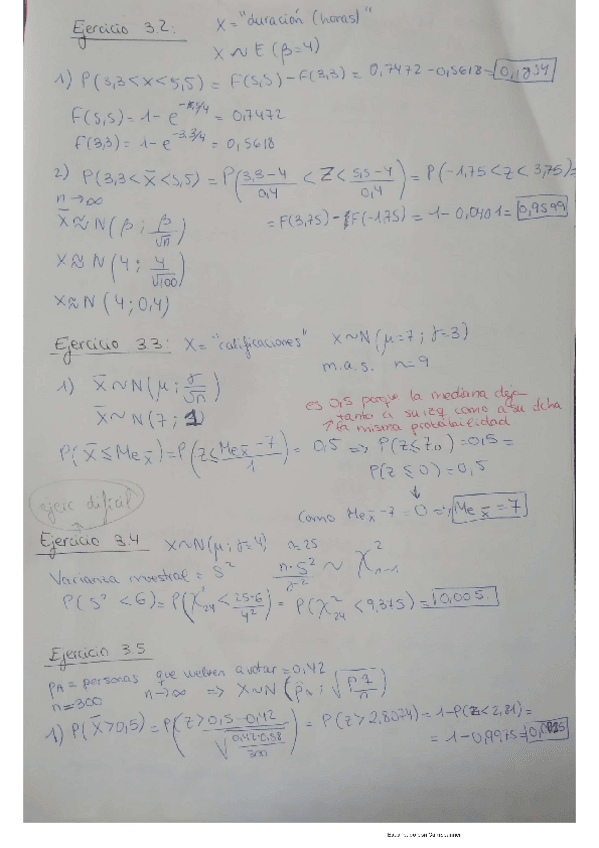 Ejercicio 3.2: X = "duración (horas)"
X ~ E (β=4)
1) P(3,3<X<5,5) = F(5,5) - F(3,3) = 0,7472 - 0,5618 = 0,1854
F(5,5) = 1 - e^-5,5/4 = 0,7472
F(3,3) = 1 - e^-3,3/4 = 0,5618
2) P(3,3<X̄<5,5) = P(3,3-4/0,4 < Z < 5,5-4/0,4) = P(-1,75<Z<3,75) =
n→∞
= F(3,75) - F(-1,75) = 1 - 0,0401 = 0,9599
X̄ ≈ N(β; β/√n)
X ≈ N(4; 4/√100)
X ≈ N(4; 0,4)
Ejercicio 3.3: X = "calificaciones" X~N(μ=7; σ=3)
m.a.s. n=9
1) X̄ ~ N(μ; σ/√n)
X̄ ~ N(7; 1)
es 0,5 porque la mediana deja
tanto a su izq como a su dcha
la misma probabilidad
P(X̄ ≤ Me X̄) = P(Z ≤ Me X̄ - 7/1) = 0,5 => P(Z ≤ Z0) = 0,5 =
P(Z ≤ 0) = 0,5
como Me X̄ - 7 = 0 => Me X̄ = 7
ejerc difícil
Ejercicio 3.4 X~N(μ; σ=4) n=25
Varianza muestral = S² n·S²/σ² ~ χ²n-1
P(S² < 6) = P(χ²24 < 25·6/4²) = P(χ²24 < 9,375) = 0,005
Ejercicio 3.5
pA = personas que vuelven a votar = 0,42
n=300 n→∞ => X~N(pA; √p·q/n)
1) P(X̄>0,5) = P(Z > 0,5-0,42/√0,42·0,58/300) = P(Z>2,8074) = 1-P(Z<2,81) =
= 1 - 0,9975 = 0,0025